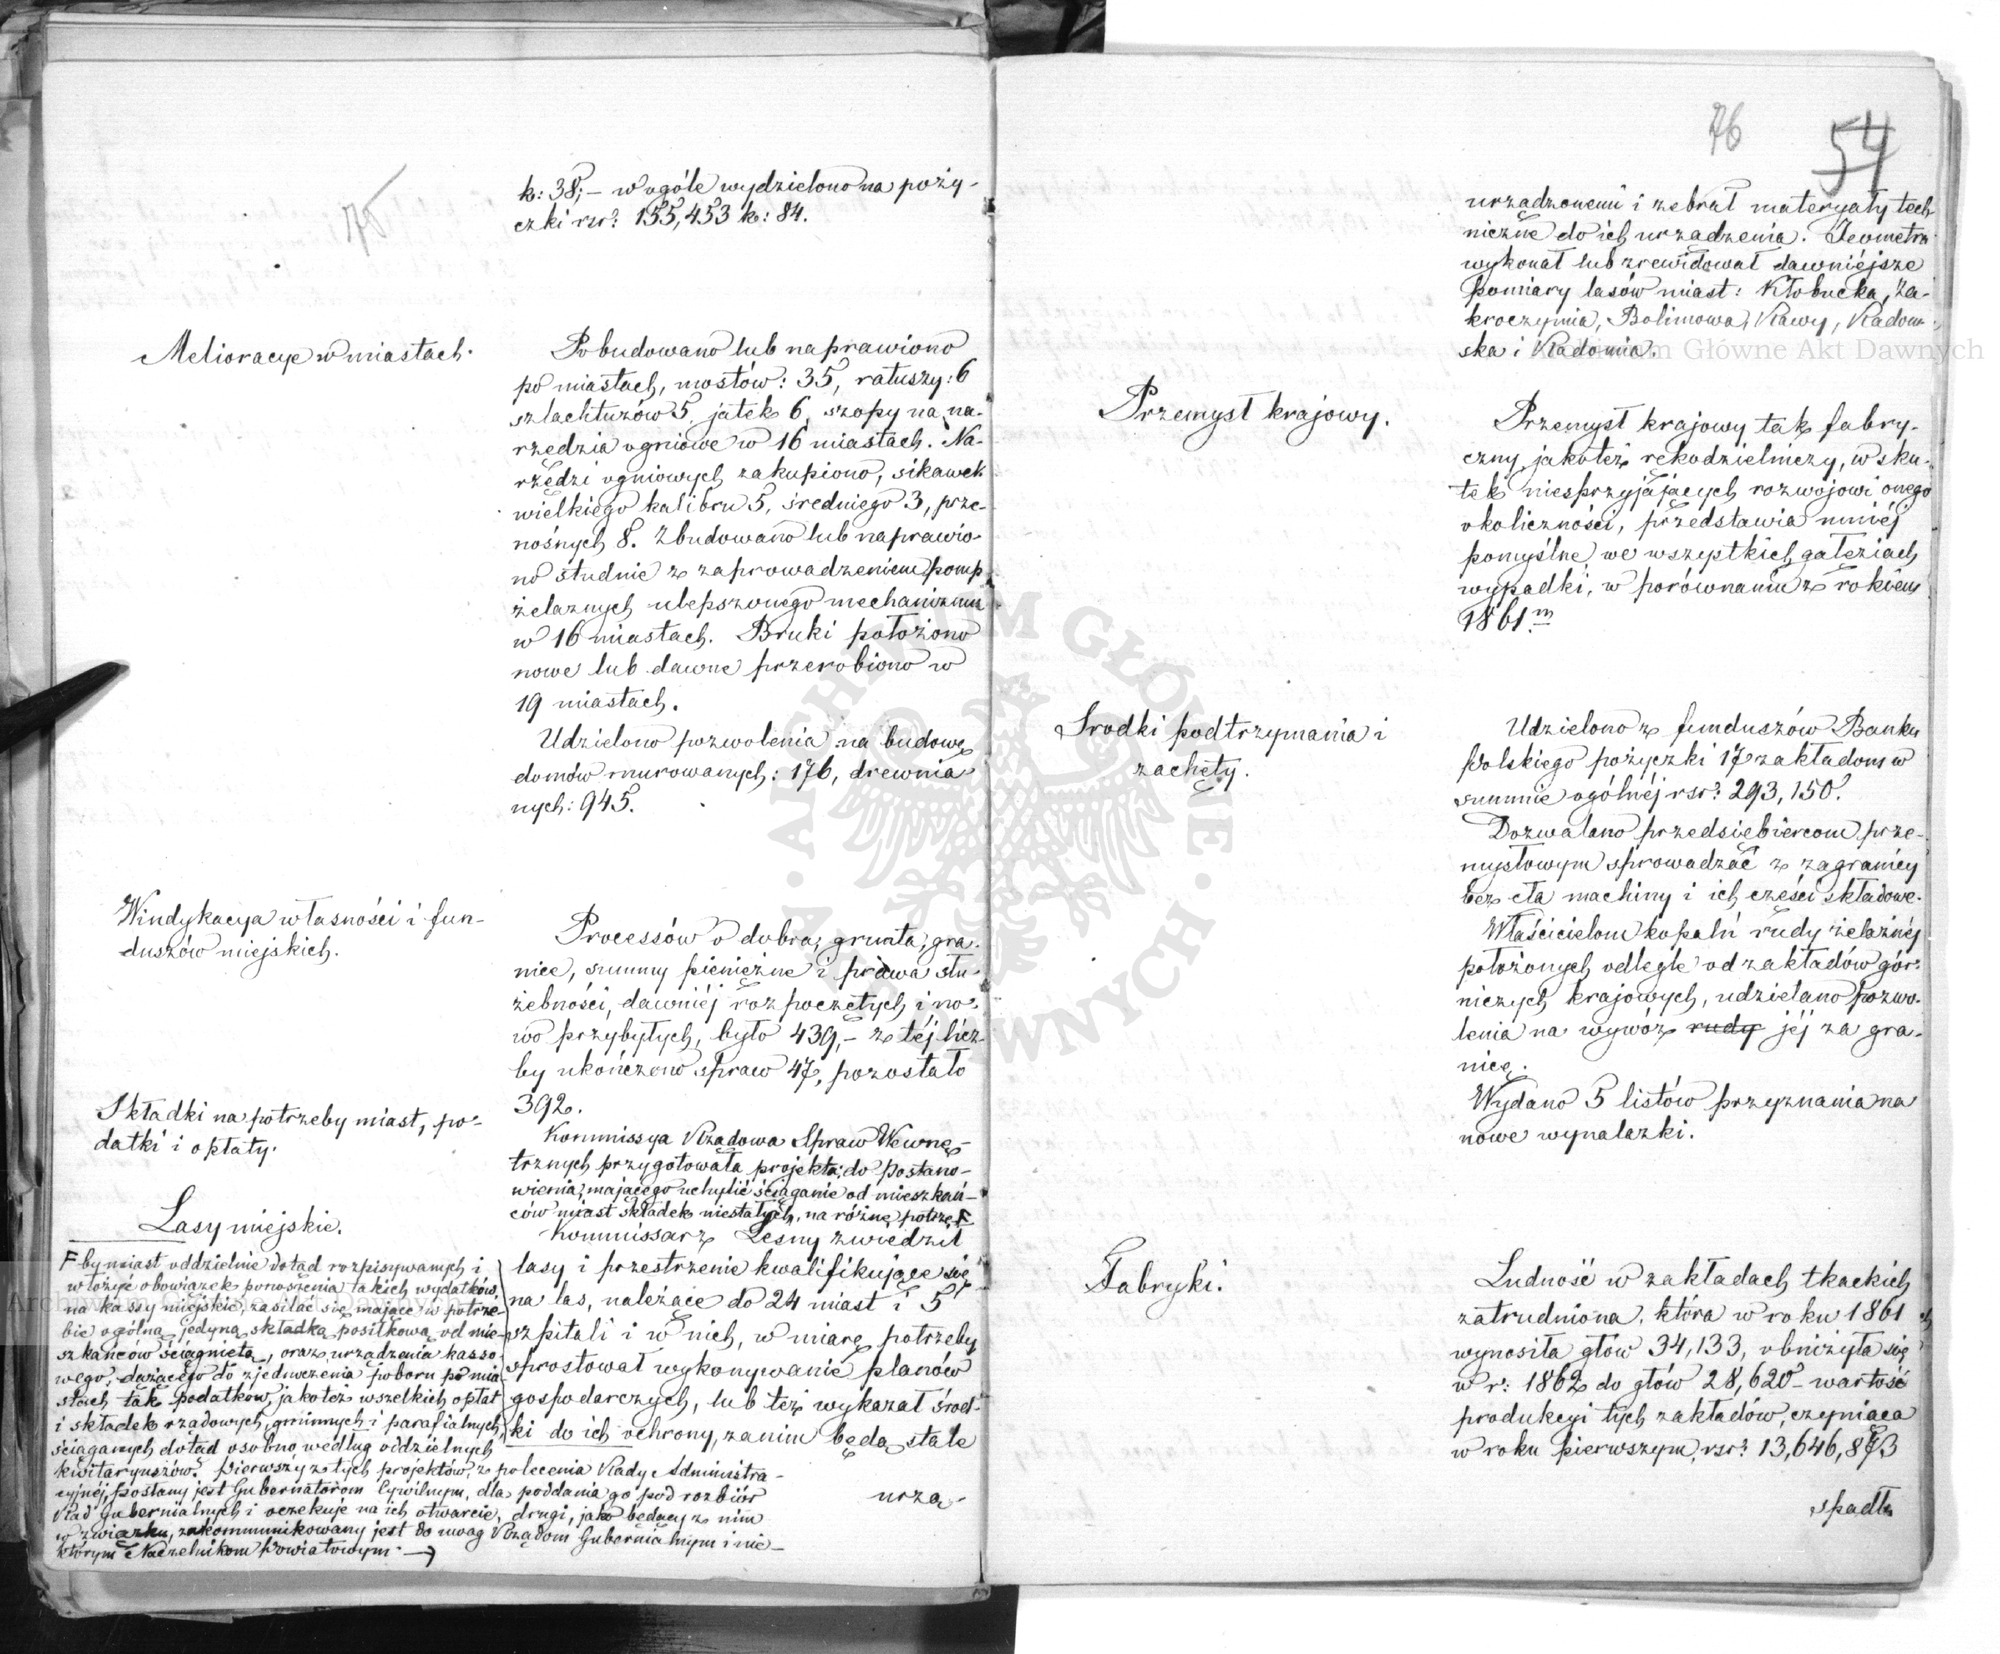 75
k: 38,– w ogóle wydzielono na poży-
czki rsr? 155,453 k: 84.
Melioracye w miastach.
Pobudowano lub naprawiono
po miastach, mostów: 35, ratuszy: 6
szlachtuzów 5, jatek 6, szopy na na-
rzędzia ogniowe w 16 miastach. Na-
rzędzi ogniowych zakupiono, sikawek
wielkiego kalibru 5, średniego 3, prze-
nośnych 8. Zbudowano lub naprawio-
no studnie z zaprowadzeniem pomp
żelaznych ulepszonego mechanizmu
w 16 miastach. Bruki położono
nowe lub dawne przerobiono w
19 miastach.
Udzielono pozwolenia na budowę
domów murowanych: 176, drewnia
nych: 945.
Windykacya własności i fun-
duszów miejskich.
Processów o dobra, grunta, gra-
nice, summy pieniężne i prawa słu-
żebności, dawniéj rozpoczętych i no-
wo przybyłych, było 439,– z téj licz-
by ukończono spraw 47, pozostało
392.
Składki na potrzeby miast, po-
datki i opłaty.
Kommissya Rządowa Spraw Wewnę-
trznych przygotowała projekta: do postano-
wienia, mającego uchylić ściąganie od mieszkań-
ców miast składek niestałych, na różne potrze F
Lasy miejskie.
F by miast oddzielnie dotąd rozpisywanych i
włożyć obowiązek ponoszenia takich wydatków,
na kassy miejskie, zasilać się mające w potrze-
bie ogólną jedyną składką posiłkową od mie-
szkańców ściągniętą, oraz urządzenia kasso-
wego, dążącego do zjednoczenia poboru po mia-
stach tak podatków, jakoteż wszelkich opłat
i składek rządowych, gminnych i parafialnych,
ściąganych dotąd osobno według oddzielnych
kwitaryuszów. Pierwszy z tych projektów, z polecenia Rady Administra-
cyjnéj, posłany jest Gubernatorom Cywilnym, dla poddania go pod rozbiór
Rad Gubernialnych i oczekuje na ich otwarcie, drugi, jako będący z nim
w związku, zakommunikowany jest do uwag Rządom Gubernialnym i nie-
którym Naczelnikom Powiatowym.
Kommissarz Leśny zwiedził
lasy i przestrzenie kwalifikujące się
na las, należące do 24 miast i 5
szpitali i w nich, w miarę potrzeby
sprostował wykonywanie planów
gospodarczych, lub też wykazał środ-
ki do ich ochrony, zanim będą stale
urzą-
76
54
urządzonemi i zebrał materyały tech
niczne do ich urządzenia. Jeometra
wykonał lub zrewidował dawniéjsze
pomiary lasów miast: Kłobucka, Za-
kroczymia, Bolimowa, Rawy, Radom-
ska i Radomia.
Przemysł krajowy.
Przemysł krajowy tak fabry-
czny jakoteż rękodzielniczy, w sku-
tek niesprzyjających rozwojowi onego
okoliczności, przedstawia mniéj
pomyślne we wszystkich gałęziach
wypadki, w porównaniu z rokiem
1861.m
Srodki podtrzymania i
zachęty.
Udzielono z funduszów Banku
Polskiego pożyczki 17 zakładom w
summie ogólnéj rsr? 293,150.
Dozwalano przedsiębiercom prze-
mysłowym sprowadzać z zagranicy
bez cła machiny i ich części składowe.
Właścicielom kopalń rudy żelaznéj
położonych odlegle od zakładów gór-
niczych krajowych, udzielano pozwo-
lenia na wywóz rudy jéj za gra-
nicę.
Wydano 5 listów przyznania na
nowe wynalazki.
Fabryki.
Ludność w zakładach tkackich
zatrudniona, która w roku 1861
wynosiła głów 34,133, obniżyła się
w r: 1862 do głów 28,620– wartość
produkcyi tych zakładów, czyniąca
w roku pierwszym, rsr? 13,646,873
spadła
Archiwum Główne Akt Dawnych
ARCHIWUM GŁÓWNE AKT DAWNYCH